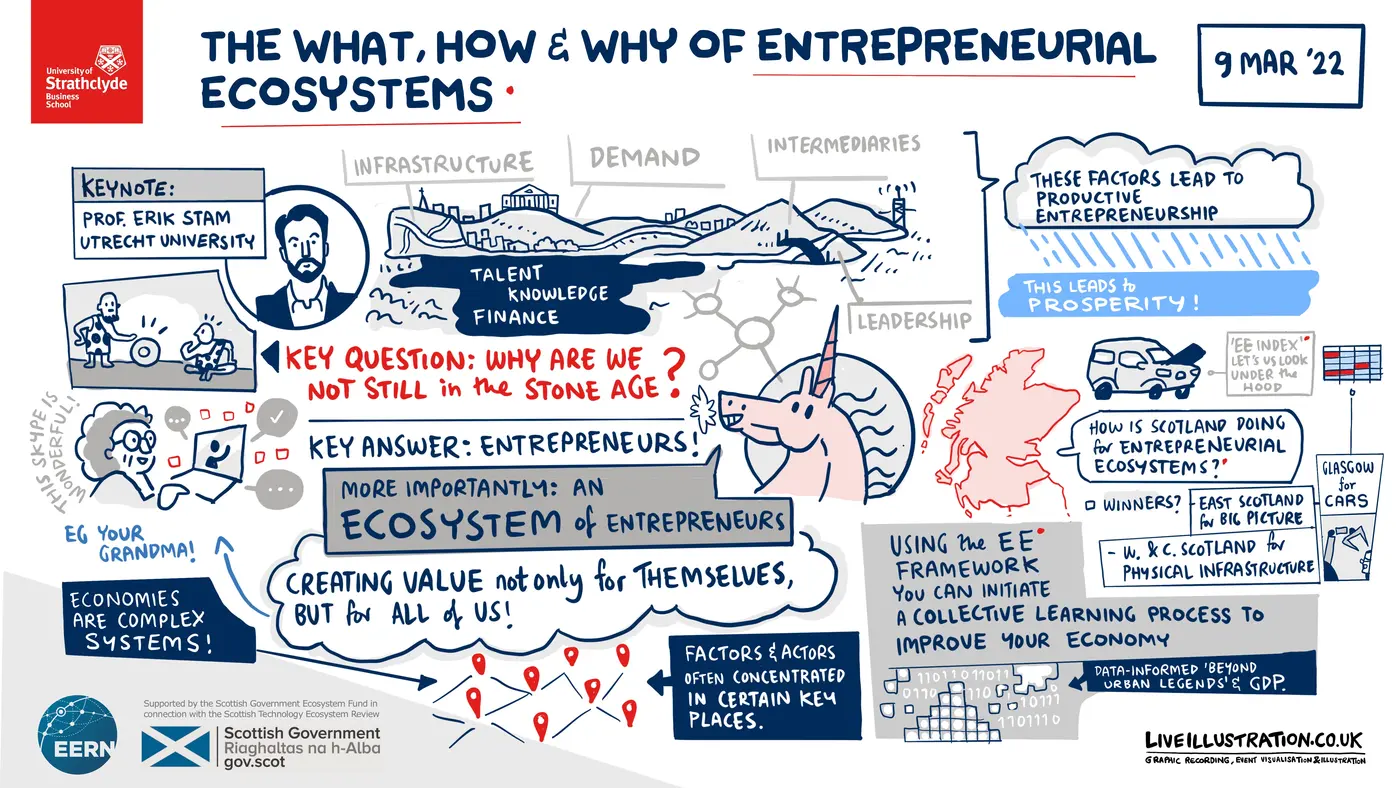 University of
Strathclyde
Business
School
THE WHAT, HOW & WHY OF ENTREPRENEURIAL
ECOSYSTEMS
9 MAR '22
KEYNOTE:
PROF. ERIK STAM
UTRECHT UNIVERSITY
INFRASTRUCTURE
DEMAND
INTERMEDIARIES
TALENT
KNOWLEDGE
FINANCE
LEADERSHIP
THESE FACTORS LEAD TO
PRODUCTIVE
ENTREPRENEURSHIP
THIS LEADS to
PROSPERITY!
KEY QUESTION: WHY ARE WE
NOT STILL in the STONE AGE?
KEY ANSWER: ENTREPRENEURS!
MORE IMPORTANTLY: AN
ECOSYSTEM of ENTREPRENEURS
CREATING VALUE not only for THEMSELVES,
BUT for ALL of US!
THIS SKYPE IS
WONDERFUL!
EG YOUR
GRANDMA!
ECONOMIES
ARE COMPLEX
SYSTEMS!
FACTORS & ACTORS
OFTEN CONCENTRATED
IN CERTAIN KEY
PLACES.
'EE INDEX'
LET'S US LOOK
UNDER the
HOOD
HOW IS SCOTLAND DOING
for ENTREPRENEURIAL
ECOSYSTEMS?
WINNERS?
EAST SCOTLAND
for BIG PICTURE
- W. & C. SCOTLAND for
PHYSICAL INFRASTRUCTURE
GLASGOW
for
CARS
USING the EE
FRAMEWORK
YOU CAN INITIATE
A COLLECTIVE LEARNING PROCESS TO
IMPROVE YOUR ECONOMY
DATA-INFORMED 'BEYOND
URBAN LEGENDS' & GDP.
EERN
Supported by the Scottish Government Ecosystem Fund in
connection with the Scottish Technology Ecosystem Review
Scottish Government
Riaghaltas na h-Alba
gov.scot
LIVEILLUSTRATION.CO.UK
GRAPHIC RECORDING, EVENT VISUALISATION & ILLUSTRATION